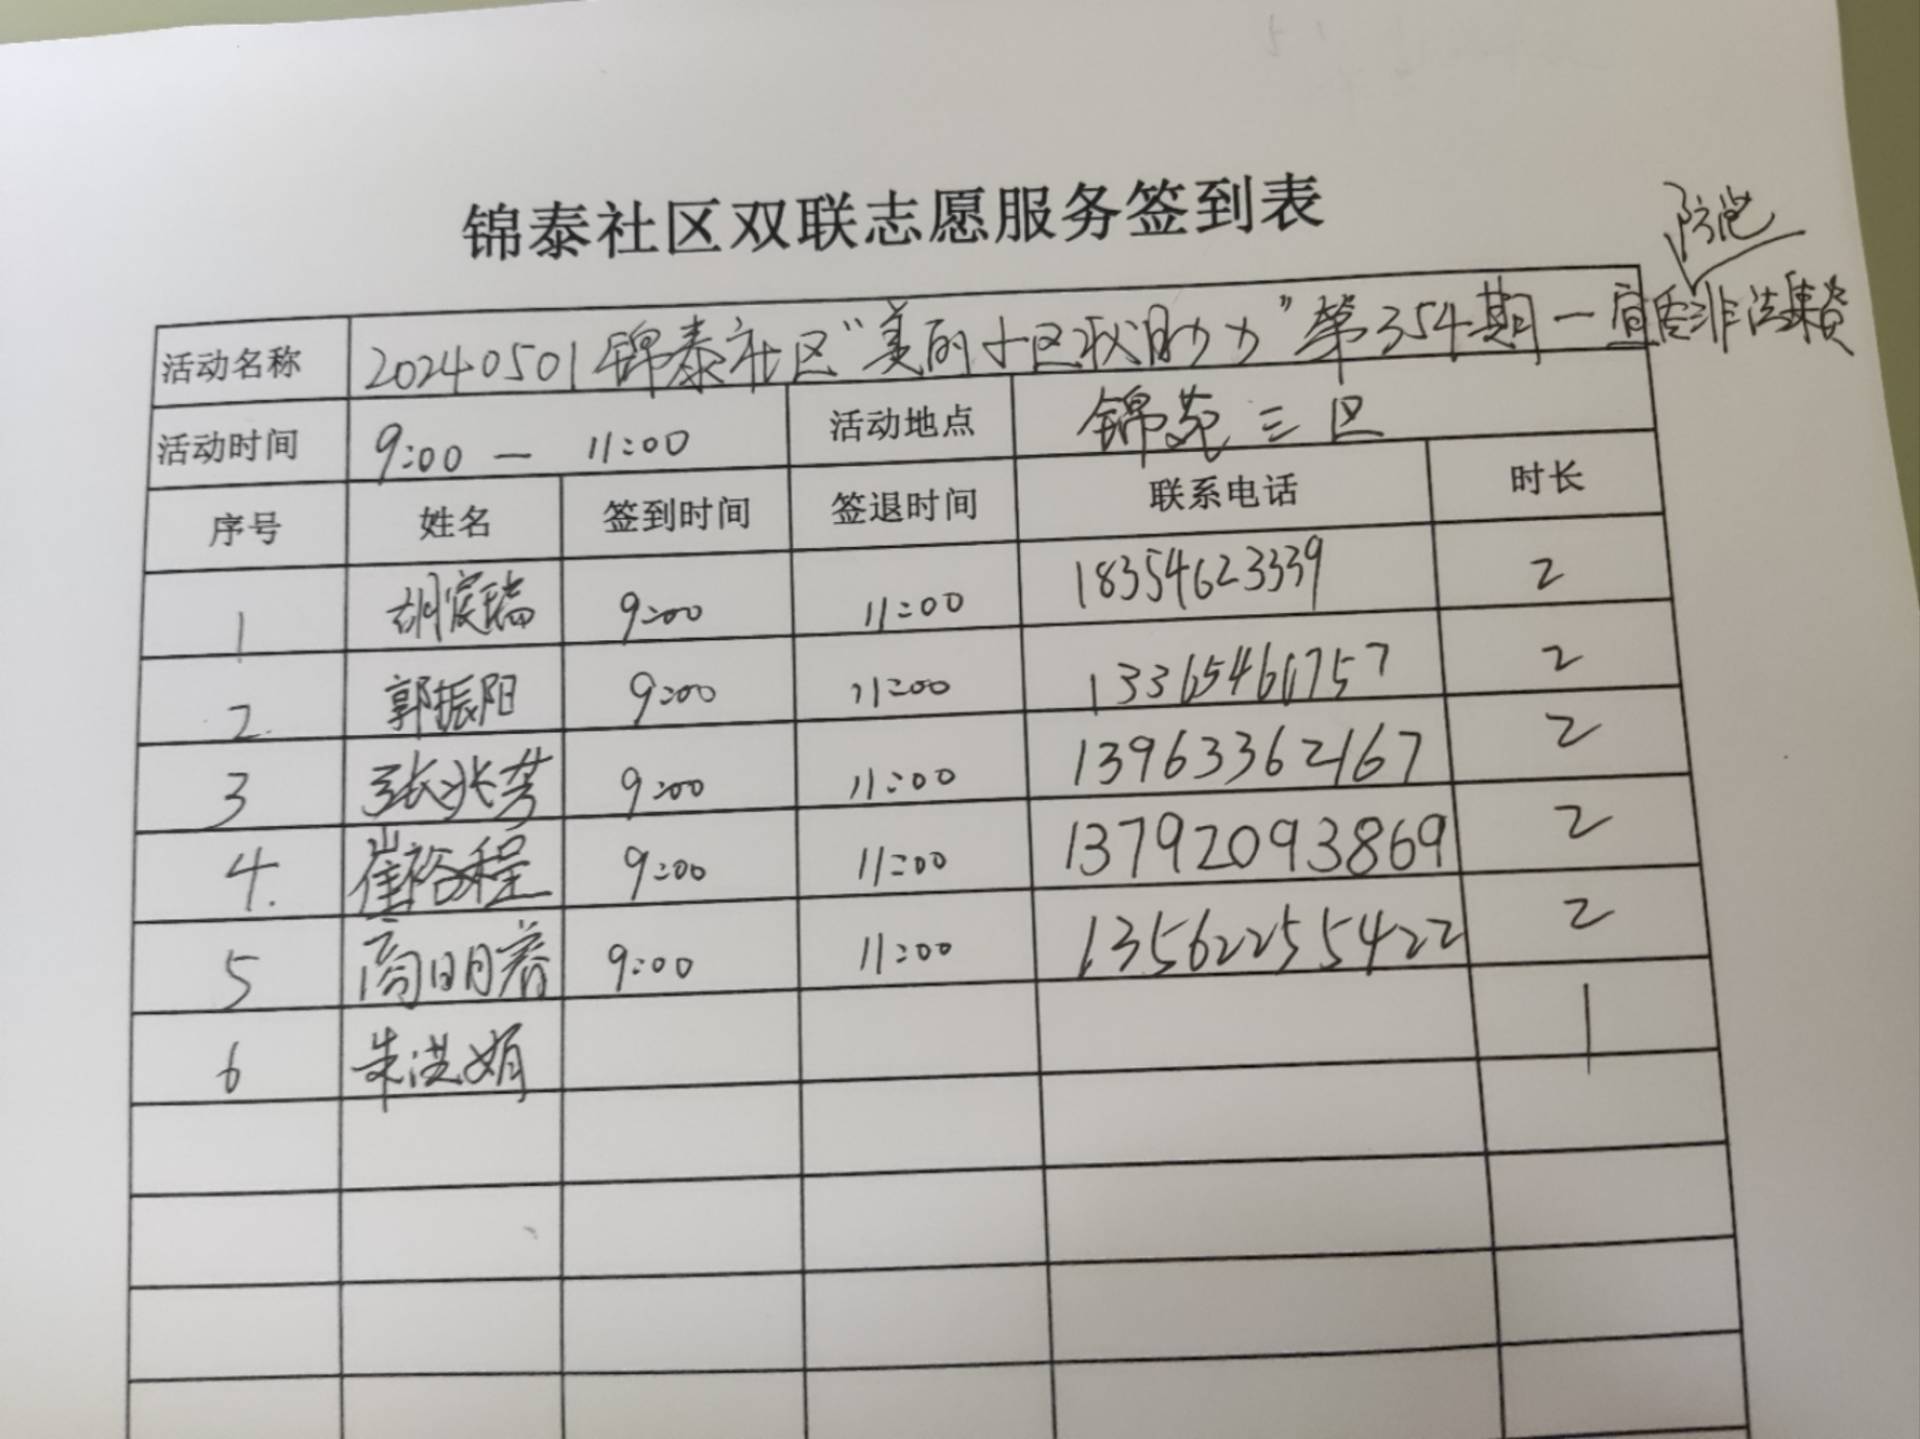 锦泰社区双联志愿服务签到表
防范
活动名称 20240501锦泰社区“美丽小区我助力”第354期—宣传非法集资
活动时间 9:00 — 11:00 活动地点 锦苑三区
序号 姓名 签到时间 签退时间 联系电话 时长
1 胡宸瑞 9:00 11:00 18354623339 2
2. 郭振阳 9:00 11:00 13365466757 2
3 张兆芳 9:00 11:00 13963362167 2
4. 崔裕程 9:00 11:00 13792093869 2
5 高明春 9:00 11:00 13562255422 2
6 朱洪娟 1